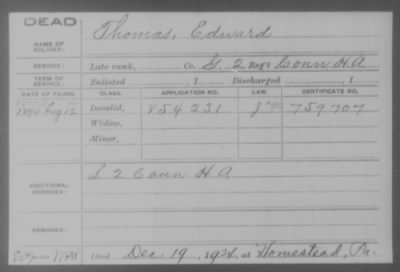 DEAD
NAME OF SOLDIER: Thomas, Edward
SERVICE: Late rank, Co. G, 2 Reg't Conn H.A.
TERM OF SERVICE: Enlisted , 1 Discharged , 1
DATE OF FILING. CLASS. APPLICATION NO. LAW. CERTIFICATE NO.
1890 Aug 12 Invalid, 854231 759707
Widow,
Minor,
ADDITIONAL SERVICES: L 2 Conn H A
REMARKS:
Died Dec. 19, 1924, at Homestead, Pa.